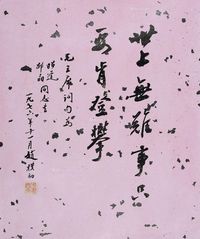 世上無難事只
要肯登攀
毛主席詞句
同志
一九七六年十一月趙樸初